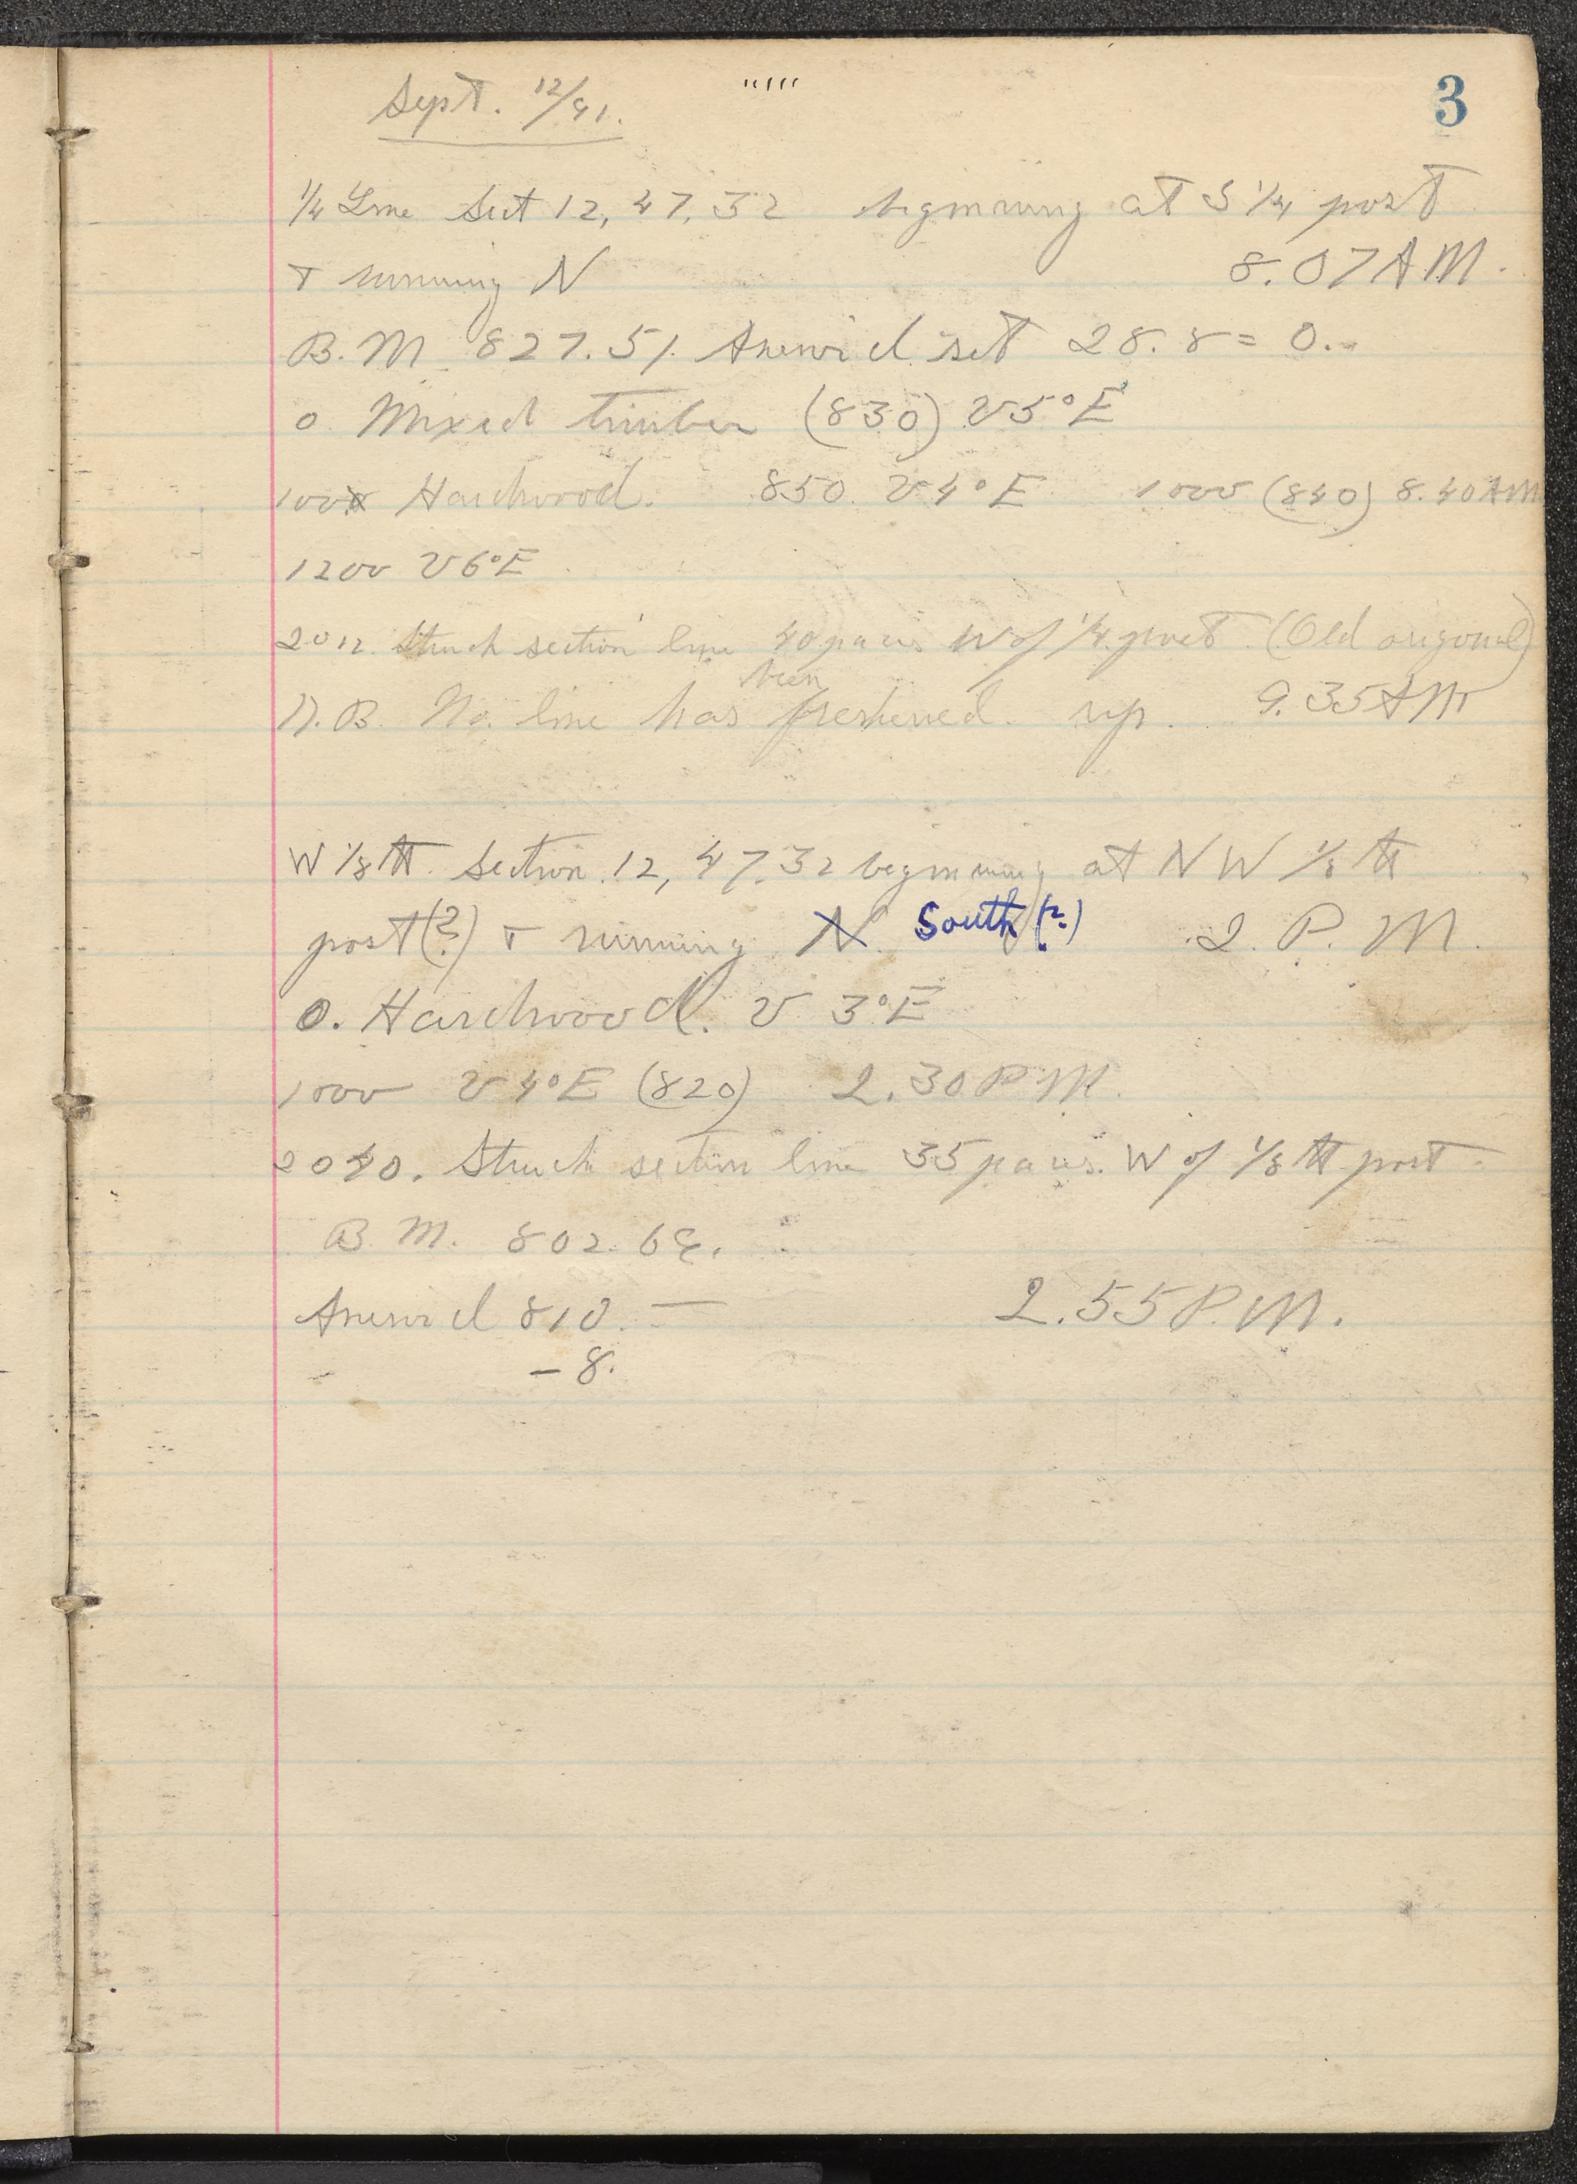 Sept. 12/91.
3
1/4 Line Sect 12, 47, 32 beginning at S 1/4 post
+ running N 8.07 A M.
B. M. 827.51. Aneroid set 28.8 = 0.
0. Mixed timber (830) V 5° E
100 Hardwood. 850. V 4° E 1000 (840) 8.40 AM
1200 V 6° E
2012. Struck section line 40 paces W of 1/4 post. (Old original)
been
N. B. No. line has freshened up. 9.35 AM
W 1/8 th Section 12, 47.32 beginning at NW 1/8 th
post (?) + running N. South (?) 2. P. M.
0. Hardwood. V 3° E
1000 V 4° E (820) 2.30 P M.
2040. Struck section line 35 paces W of 1/8 th post.
B. M. 802.69.
Aneroid 810. — 2.55 P. M.
- 8.